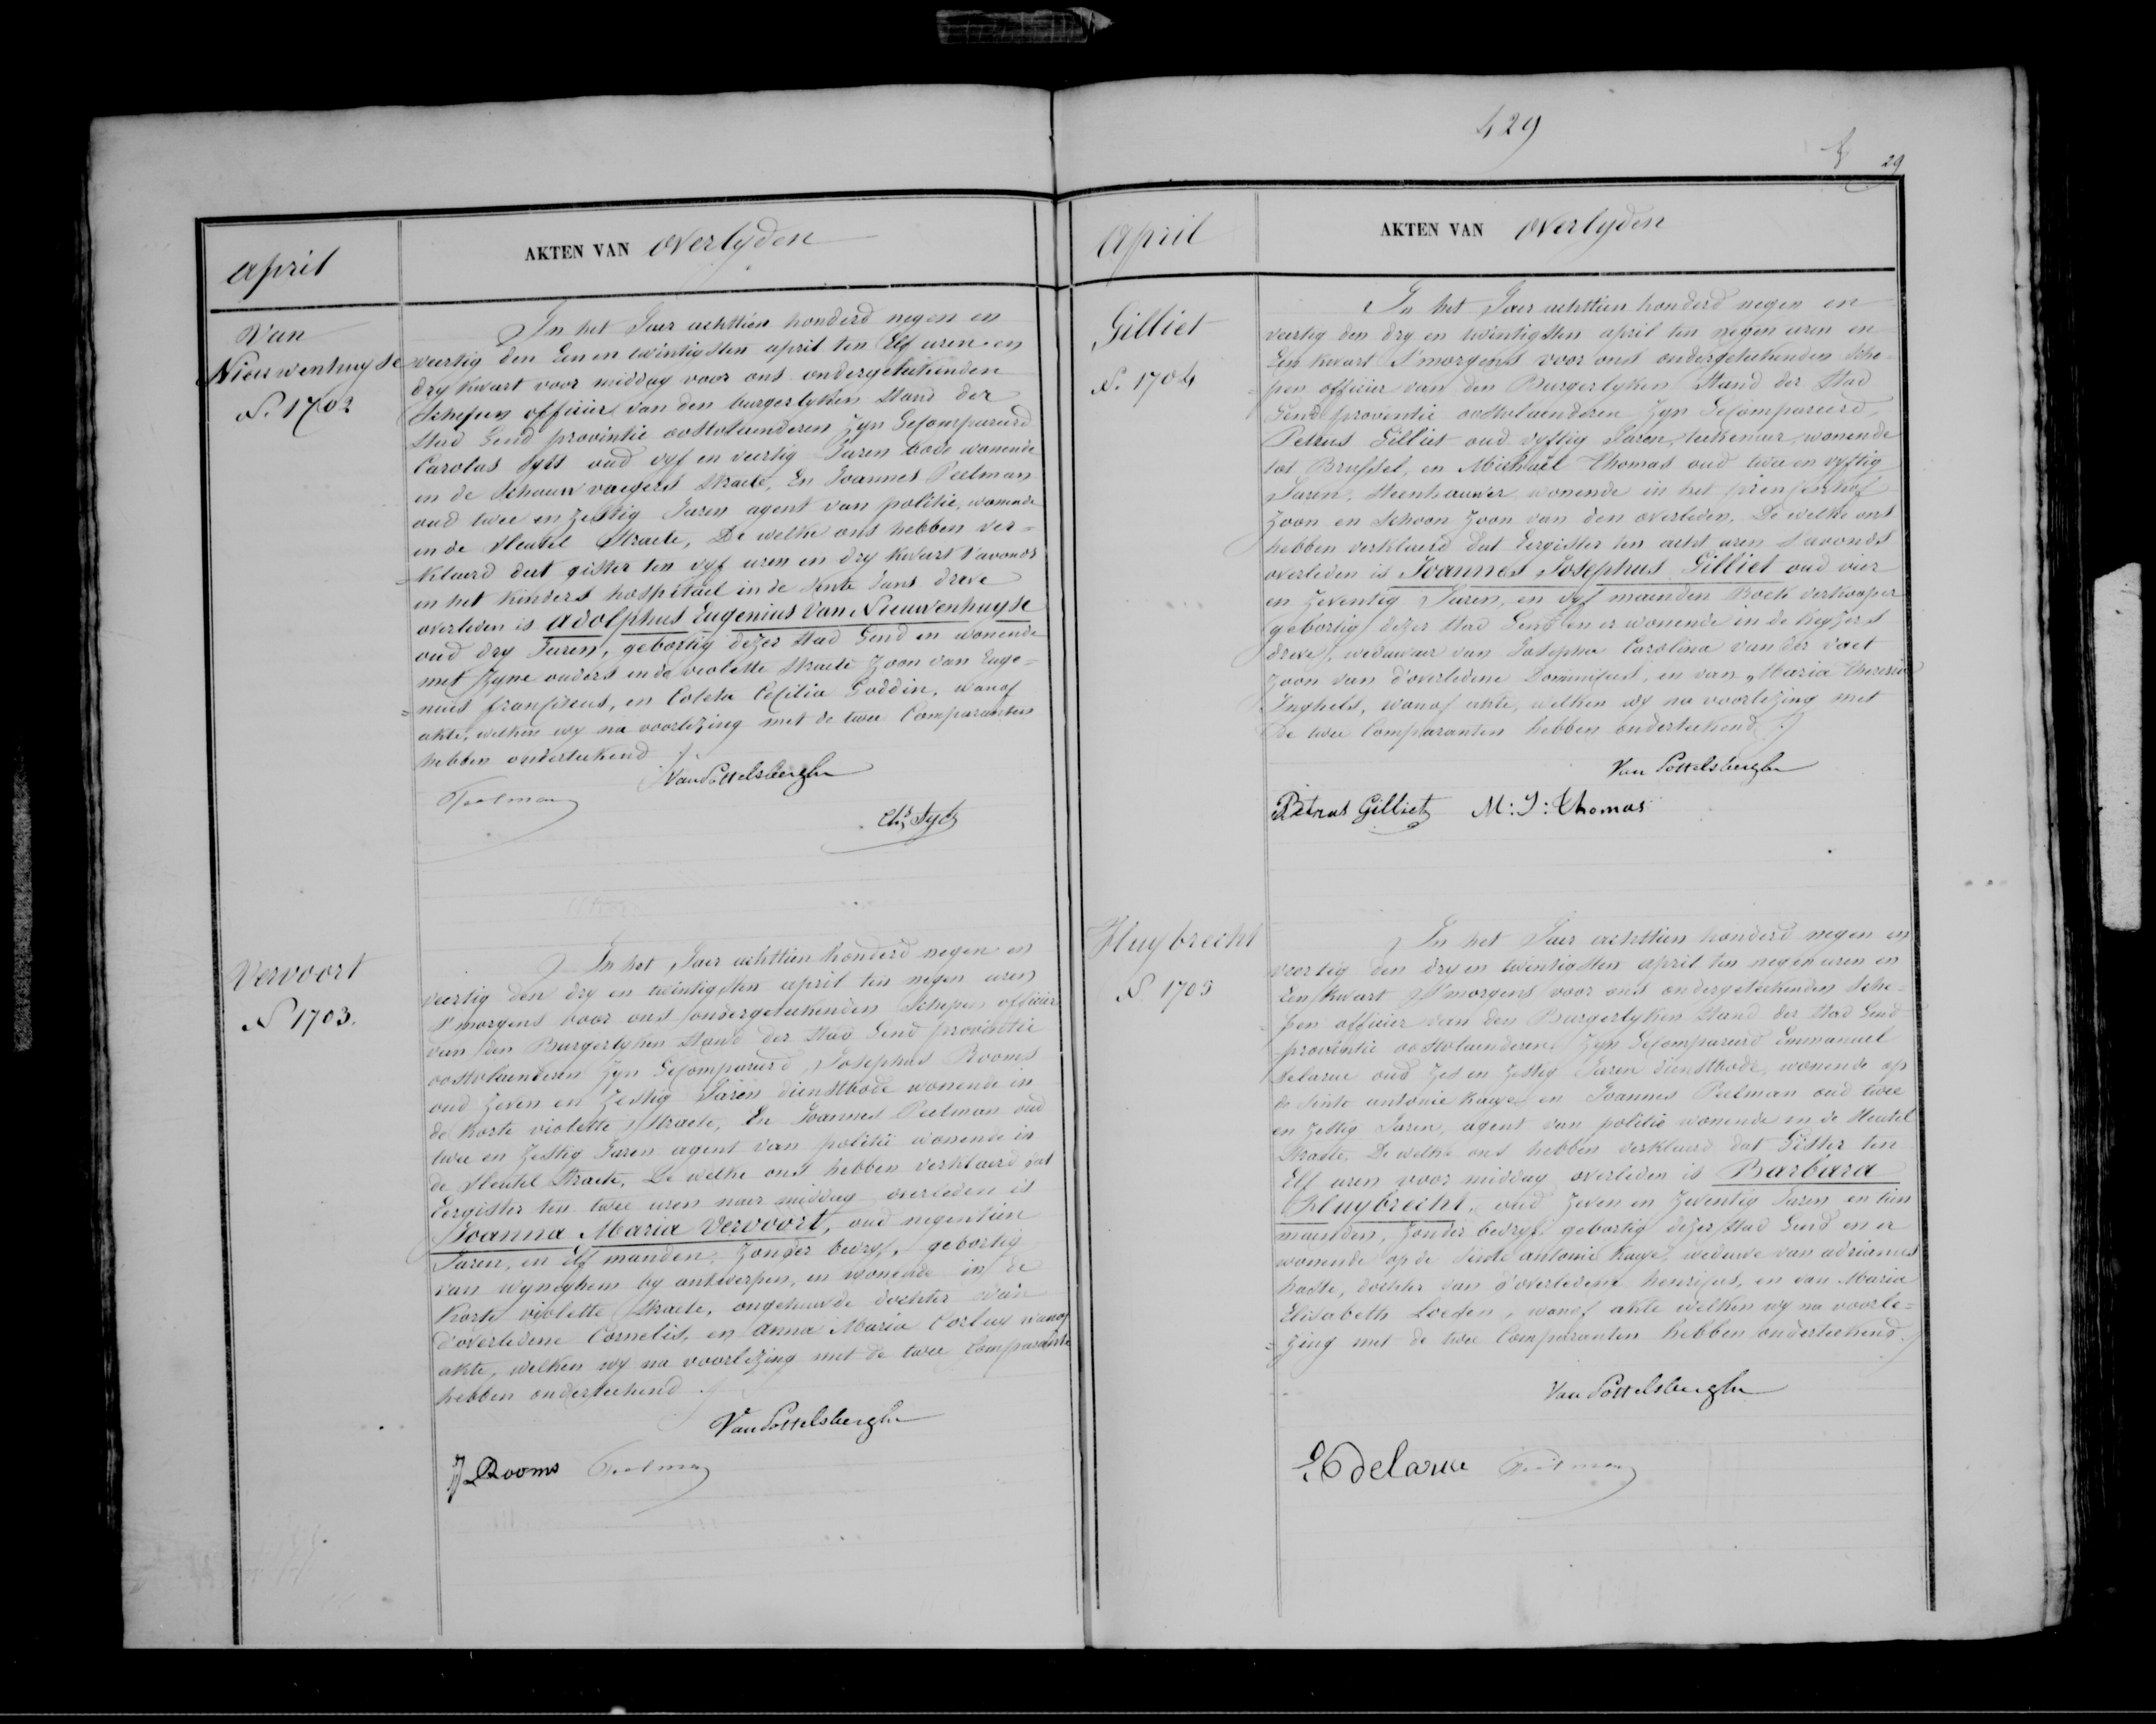 429
29
April
AKTEN VAN Overlyden
Van
Nieuwenhuyse
N. 1702
In het Jaer achttien honderd negen en
veertig den Een en twintigsten april ten Elf uren en
dry kwart voor middag voor ons ondergeteekenden
Schepen officier van den burgerlyken Stand der
Stad Gend provintie oostvlaenderen Zyn Gecompareerd
Carolus Syts oud vyf en veertig Jaren bode wonende
in de Schouwvaegers Straete, En Joannes Peelman
oud twee en Zestig Jaren agent van politie, wonende
in de Sleutel Straete, De welke ons hebben ver=
klaerd dat gister ten vyf uren en dry kwart s'avonds
in het Kinders hospitael in de Sinte Jans dreve
overleden is Adolphus Eugenius Van Nieuwenhuyse
oud dry Jaren, gebortig dezer Stad Gend en wonende
met Zyne ouders in de violette Straete Zoon van Euge=
=nius franciscus, en Coleta Cecilia Goddin, wanof
akte, welken wy na voorlezing met de twee Comparanten
hebben onderteekend ./.
Van Pottelsberghe
Peelman
Vervoort
N 1703.
In het Jaer achttien honderd negen en
veertig den dry en twintigsten april ten negen uren
s'morgens voor ons ondergeteekenden Schepen officier
van den Burgerlyken Stand der Stad Gend provintie
oostvlaenderen Zyn Gecompareerd, Josephus Rooms
oud Zeven en Zestig Jaren dienstbode wonende in
de Korte violette Straete, En Joannes Peelman oud
twee en Zestig Jaren agent van politie wonende in
de Sleutel Straete, De welke ons hebben verklaerd dat
Eergister ten twee uren naer middag overleden is
Joanna Maria Vervoort, oud negentien
Jaren, en Elf manden, Zonder bedryf, gebortig
van Wyneghem by antwerpen, en wonende in de
Korte violette Straete, ongehuwde dochter van
d'overledene Cornelis, en Anna Maria Cortuy wanof
akte, welken wy na voorlezing met de twee Comparanten
hebben onderteekend ./.
Van Pottelsberghe
J Rooms Peelman
April
AKTEN VAN Overlyden
Gilliet
N. 1704
In het Jaer achttien honderd negen en
veertig den dry en twintigsten april ten negen uren en
Een kwart S'morgens voor ons ondergeteekenden Sche=
=pen officier van den Burgerlyken Stand der Stad
Gend provintie oostvlaenderen Zyn Gecompareerd,
Petrus Gilliet oud vyftig Jaren, teekenaer, wonende
tot Brussel, en Michaël Thomas oud twee en vyftig
Jaren, Steenhouwer wonende in het prinsenhof
Zoon en Schoon Zoon van den overleden, De welke ons
hebben verklaerd dat Eergister ten acht uren s'avonds
overleden is Joannes Josephus Gilliet oud vier
en Zeventig Jaren, en vyf maenden Boek verkooper
gebortig dezer Stad Gend en er wonende in de Keyzers
dreve, weduwaer van Josepha Carolina Van der Vaet
Zoon van d'overledene Dominicus, en van Maria Theresia
Inghels, wanof akte, welken wy na voorlezing met
De twee Comparanten hebben onderteekend ./.
Van Pottelsberghe
Petrus Gilliet M: J: Thomas
Huybrecht
N 1705
In het Jaer achttien honderd negen en
veertig den dry en twintigsten april ten negen uren en
Een kwart S'morgens voor ons ondergeteekenden Sche=
=pen officier van den Burgerlyken Stand der Stad Gend
provintie oostvlaenderen Zyn Gecompareerd Emmanuel
Delarue oud Zes en Zestig Jaren dienstbode, wonende op
de Sinte antonie Kaye en Joannes Peelman oud twee
en Zestig Jaren, agent van politie wonende in de Sleutel
Straete. De welke ons hebben verklaerd dat Gister ten
Elf uren voor middag overleden is Barbara
Huybrecht, oud Zeven en Zeventig Jaren en tien
maenden, Zonder bedryf, gebortig dezer Stad Gend en er
wonende op de Sinte antonie Kaye, weduwe van adrianus
haste, dochter van d'overledene henricus, en van Maria
Elisabeth Loeden, wanof akte welken wy na voorle=
=zing met de twee Comparanten hebben onderteekend ./.
Van Pottelsberghe
E delarue Peelman